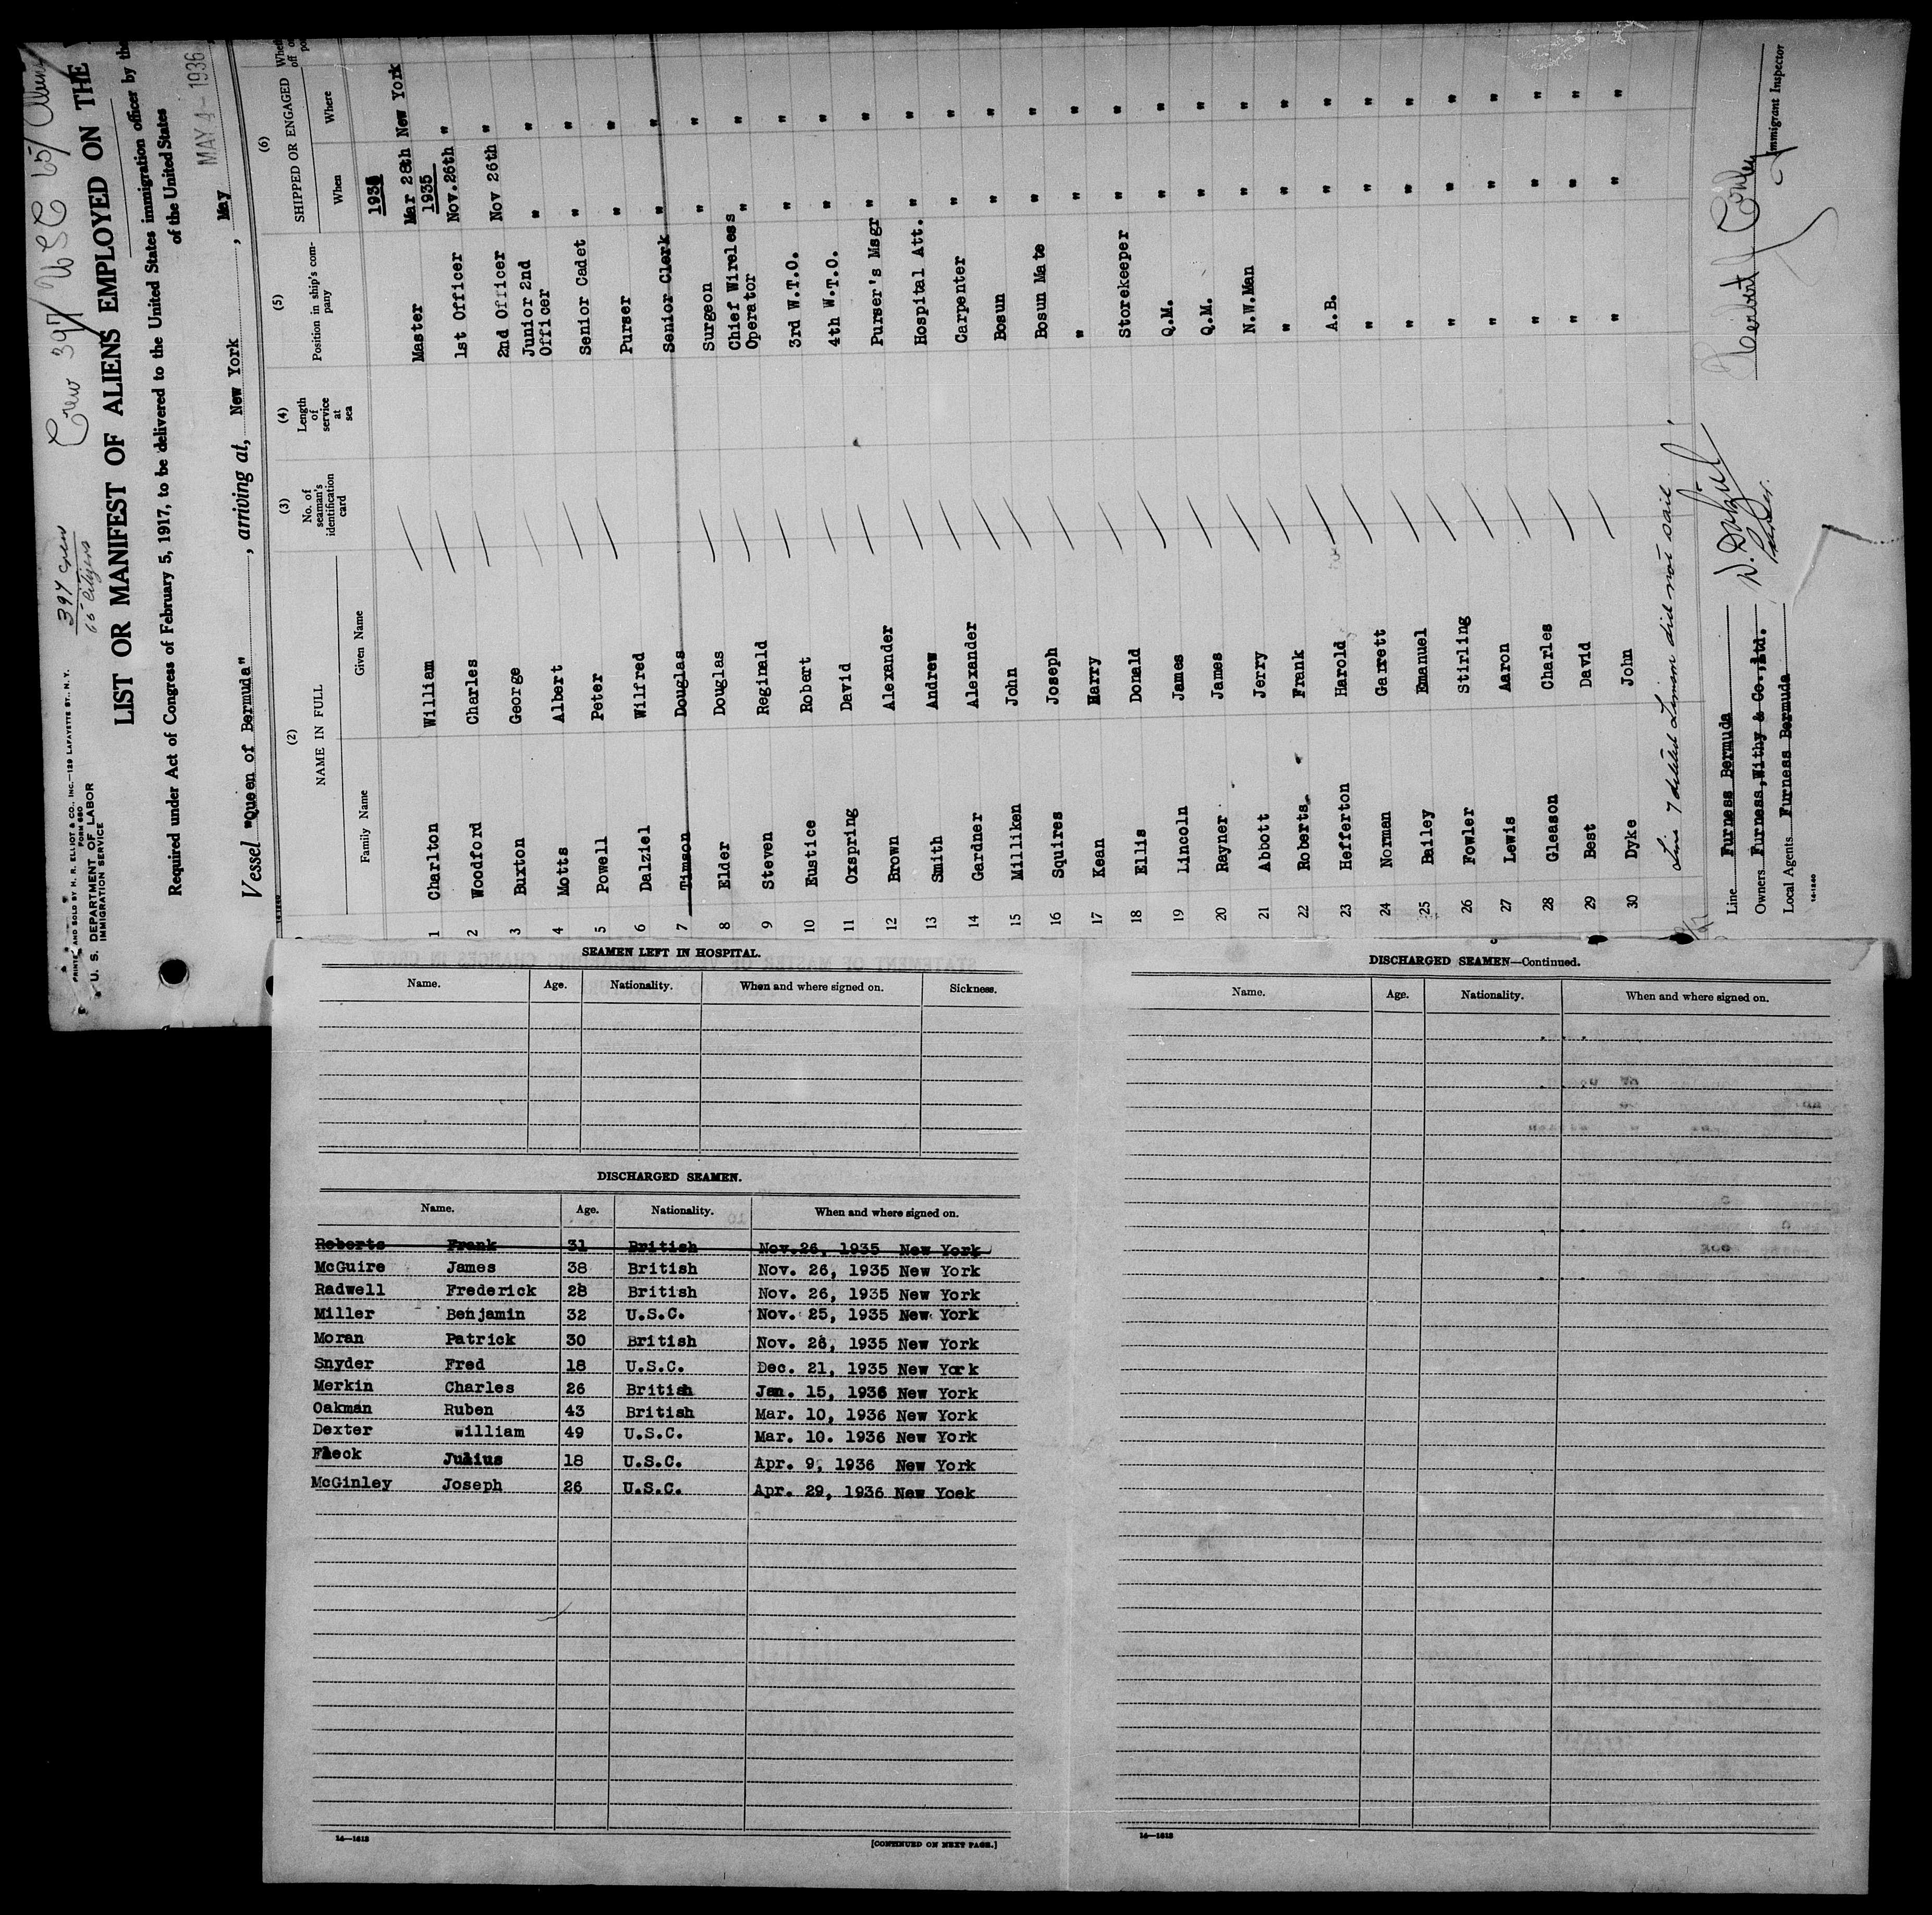 PRINTED AND SOLD BY H. R. ELLIOT & CO., INC.—129 LAFAYETTE ST., N. Y.
FORM 680
U. S. DEPARTMENT OF LABOR
IMMIGRATION SERVICE
397 crew
65 Citizens
Crew 397 / USC 65 /
LIST OR MANIFEST OF ALIENS EMPLOYED ON THE
Required under Act of Congress of February 5, 1917, to be delivered to the United States immigration officer by the
of the United States
MAY 4 - 1936
Vessel "Queen of Bermuda", arriving at, New York, May
(2) (3) (4) (5) (6)
NAME IN FULL No. of seaman's identification card Length of service at sea Position in ship's company SHIPPED OR ENGAGED
Family Name Given Name When Where
1935
1 Charlton William Master Mar 28th New York
1935
2 Woodford Charles 1st Officer Nov.26th "
3 Buxton George 2nd Officer Nov 26th "
4 Motts Albert Junior 2nd Officer " "
5 Powell Peter Senior Cadet " "
6 Dalziel Wilfred Purser " "
7 Timson Douglas Senior Clerk " "
8 Elder Douglas Surgeon " "
9 Steven Reginald Chief Wireless Operator " "
10 Eustice Robert 3rd W.T.O. " "
11 Oxspring David 4th W.T.O. " "
12 Brown Alexander Purser's Msgr " "
13 Smith Andrew Hospital Att. " "
14 Gardner Alexander Carpenter " "
15 Milliken John Bosun " "
16 Squires Joseph Bosun Mate " "
17 Kean Harry " " "
18 Ellis Donald Storekeeper " "
19 Lincoln James Q.M. " "
20 Rayner James Q.M. " "
21 Abbott Jerry N.W.Man " "
22 Roberts Frank " " "
23 Hefferton Harold A.B. " "
24 Norman Garrett " " "
25 Bailey Emanuel " " "
26 Fowler Stirling " " "
27 Lewis Aaron " " "
28 Gleason Charles " " "
29 Best David " " "
30 Dyke John " " "
Line 7 deleted Timson did not sail.
Line Furness Bermuda
Owners Furness, Withy & Co., Ltd.
Local Agents Furness Bermuda
14-1240
W. Dalziel
Purser.
Immigrant Inspector
SEAMEN LEFT IN HOSPITAL.
Name. Age. Nationality. When and where signed on. Sickness.
DISCHARGED SEAMEN.
Name. Age. Nationality. When and where signed on.
Roberts Frank 31 British Nov.26, 1935 New York
McGuire James 38 British Nov. 26, 1935 New York
Radwell Frederick 28 British Nov. 26, 1935 New York
Miller Benjamin 32 U.S.C. Nov. 25, 1935 New York
Moran Patrick 30 British Nov. 26, 1935 New York
Snyder Fred 18 U.S.C. Dec. 21, 1935 New York
Merkin Charles 26 British Jan. 15, 1936 New York
Oakman Ruben 43 British Mar. 10, 1936 New York
Dexter William 49 U.S.C. Mar. 10. 1936 New York
Fleck Julius 18 U.S.C. Apr. 9, 1936 New York
McGinley Joseph 26 U.S.C. Apr. 29, 1936 New Yoek
14—1613
[CONTINUED ON NEXT PAGE.]
DISCHARGED SEAMEN—Continued.
Name. Age. Nationality. When and where signed on.
14—1613